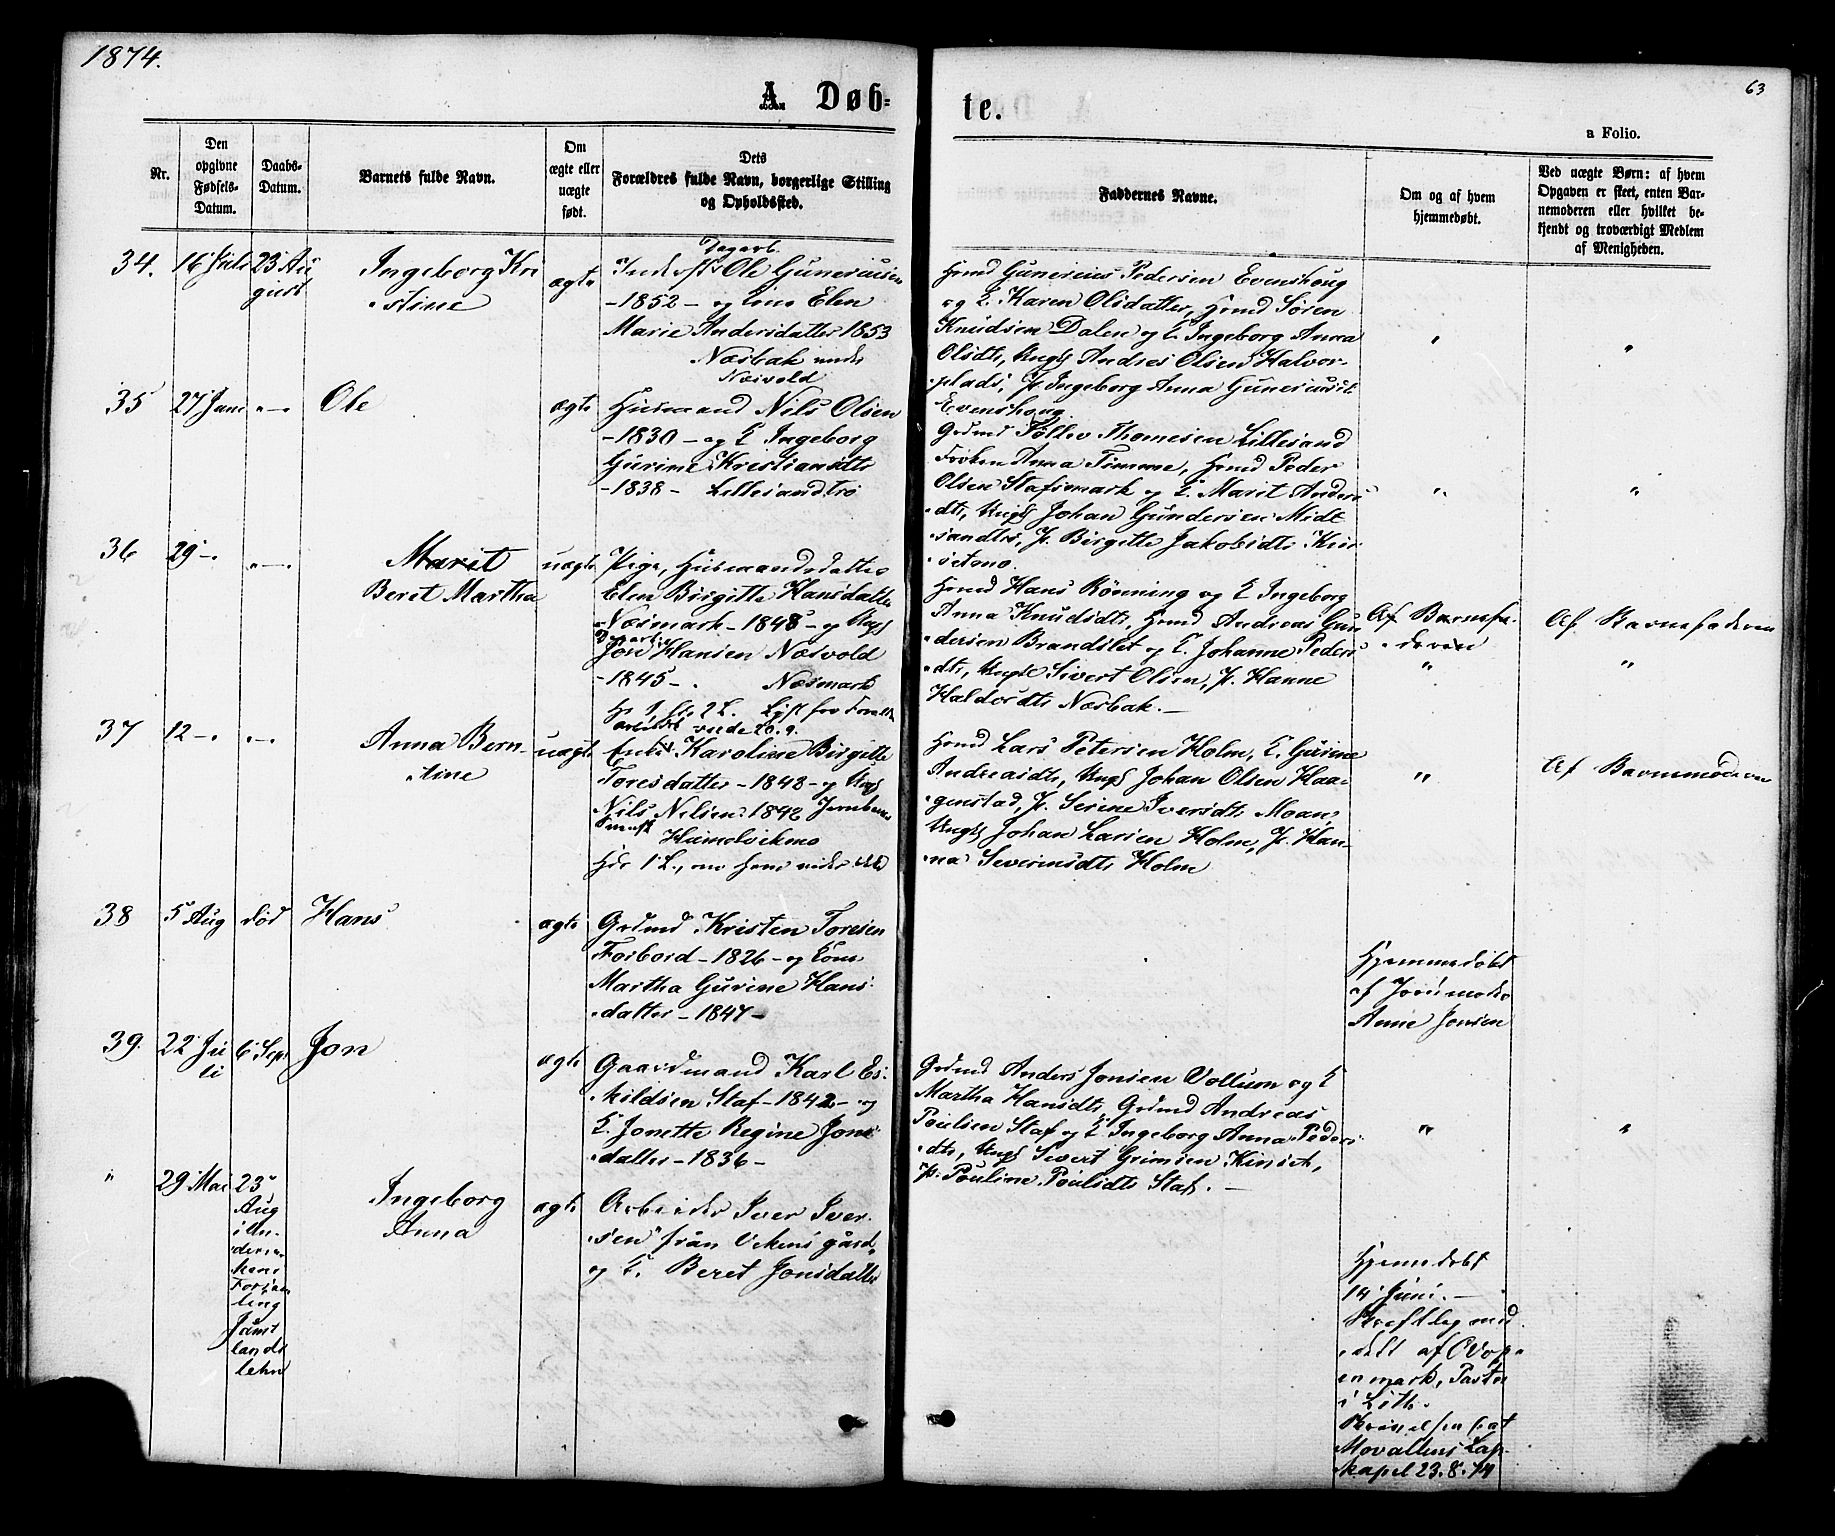 1874.
63
A. Døb-
te.
a Folio.
Nr.
Den
opgivne
Fødsels-
Datum.
Daabs-
Datum.
Barnets fulde Navn.
Om
ægte eller
uægte
født.
Dets
Forældres fulde Navn, borgerlige Stilling
og Opholdssted.
Faddernes Navne.
Om og af hvem
hjemmedøbt.
Ved uægte Børn: af hvem
Opgaven er skeet, enten Bar-
nemoderen eller hvilket be-
kjendt og troværdigt Medlem
af Menigheden.
34.
16 Juli
23 Au
gust
Ingeborg Kri
stine
ægte
Dagarb.
Inderst Ole Guneriusen
-1852- og Kone Elen
Marie Andersdatter 1853
Næsbak under
Næsvold
Hmd Gunerius Pedersen Evenshoug
og K. Karen Olsdatter, Hmd Søren
Knudsen Dalen og K Ingeborg Anna
Olsdt, Ungk Andres Olsen Halvor-
plads, P. Ingeborg Anna Guneriusdt
Evenshoug.
"
"
35
27 Juni
"—
Ole
ægte
Husmand Nils Olsen
-1830- og K Ingeborg
Gurine Kristiansdtr
-1838- Lillesandtrø
Grdmd Tollev Thomesen Lillesand
Frøken Anna Timme, Hmd Peder
Olsen Stafsmark og K. Marit Anders
dtr, Ungk Johan Gundersen Midt
sandtrø, P. Birgitte Jakobsdtr Kin
setmo.
"
"
36
29 —
"—
Marit
Beret Martha
uægte
Pige, Husmandsdatter
Elen Birgitte Hansdatter
Næsmark -1848- og Ungk
Jon Hansen Næsvold
-1845- Næsmark
Hmd Hans Rønning og K Ingeborg
Anna Knudsdtr, Hmd Andreas Gun
dersen Brandslet og K. Johanne Peders
dtr, Ungk Sivert Olsen, P. Hanne
Haldorsdtr Næsbak. —
Af Barnefa-
deren
"
Af Barnefaderen
"
37
12 —
"—
Anna Bern-
tine
uægte
Enke Karoline Birgitte
Toresdatter -1843- og Ungk
Nils Nelsen 1842
Svensk
Hmd Lars Petersen Holm, K. Gurine
Andreasdtr, Ungk Johan Olsen Haa-
genstad, P. Serine Iversdtr Moan,
Ungk Johan Larsen Holm, P. Han-
na Severinsdtr Holm
"
Af Barnemoderen
38
5 Aug
død
Hans
ægte
Grdmd Kristen Toresen
Forbord -1826- og Kone
Martha Gurine Hans-
datter -1847-
Hjemmedøbt
af Jordmoder
Anne Jonsen
39.
22 Ju
li
6 Sept
Jon
ægte
Gaardmand Karl Es-
kildsen Staf -1842- og
K. Jonette Regine Jons-
datter -1836-
Grdmd Anders Jonsen Vollum og K
Martha Hansdtr, Grdmd Andreas
Poulsen Staf og K Ingeborg Anna Peders-
dtr, Ungk Severt Grimsen Kinset,
P. Pouline Poulsdtr Staf. —
"
"
"
29 Mai
23
Aug
i Un-
ders
Forsam
ling
Jämt
lands
lehn
Ingeborg
Anna
ægte
Arbeider Iver Iver-
sen från Vikens gård
og K. Beret Jonsdatter
Hjemmedøbt
14 Juni. —
Kraftleg med
delt af
mark, Pastor
i Lith.
Movallens Lap-
kapel 23.8.74